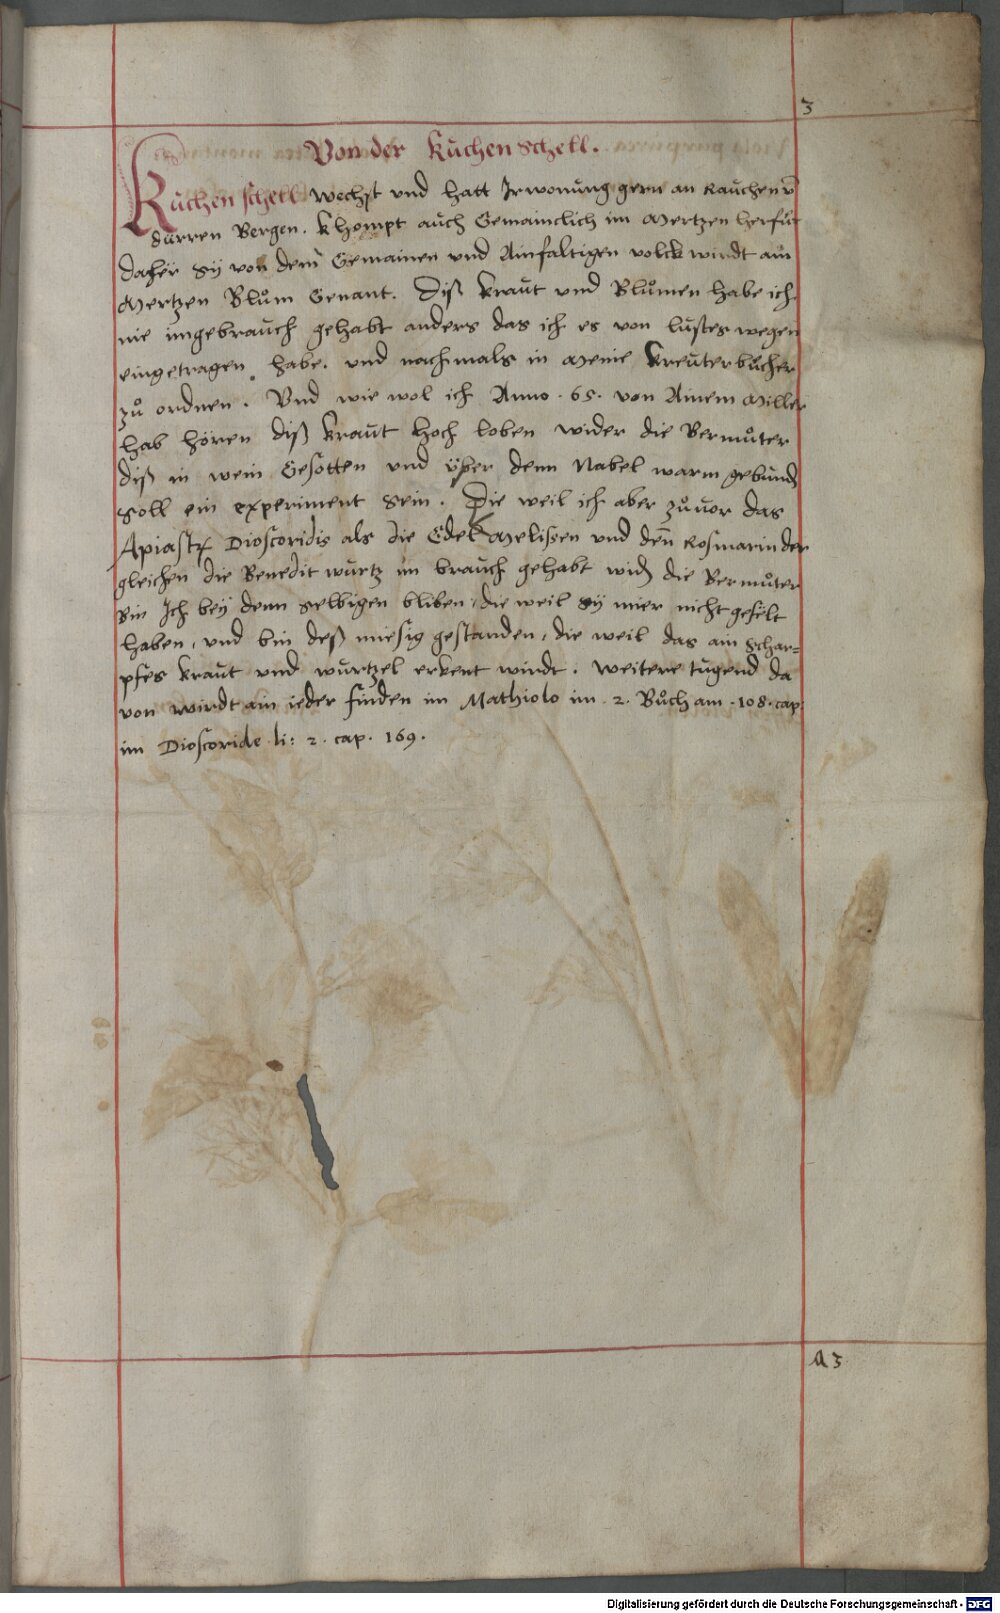 3
Von der Kuchen schell.
Kuchen schell wechst und hatt Jrwonung gern an Rauchen vn̄
dürren Bergen. Khompt auch Gemainclich im Mertzen herfür
daher sÿ von dem Gemainen und Ainfaltigen volck windt ain
Mertzen Blům Genant. Diß kraut und Blůmen habe ich
nie imgebrauch gehabt anders das ich es von lustes wegen
eingetragen habe. und nachmals in Meine kreuterbůcher
zů ordnen. Vnd wie wol ich Anno. 65. von Ainem Miller
hab hören diß kraut hoch loben wider die Bermůter
diß in wein Gesotten und über denn Nabel warm gebund
soll ein experiment sein. Die weil ich aber zůuor das
Dioscoridis als die Edel Melissen und denn Rosmarin der
gleichen die Benedit wurtz im brauch gehabt wid die Bermůter
Bin Ich beÿ denn selbigen bliben, die weil sÿ mier nicht gefelt
haben, und bin deß miesig gestanden, die weil das ain schar=
pfes kraut und wurtzel erkent windt. weitere tugend da
von wirdt ain ieder finden im Mathiolo im . 2. Bůch am . 108. cap.
im Dioscoride li: 2. cap. 169.
A 3
Digitalisierung gefördert durch die Deutsche Forschungsgemeinschaft - DFG